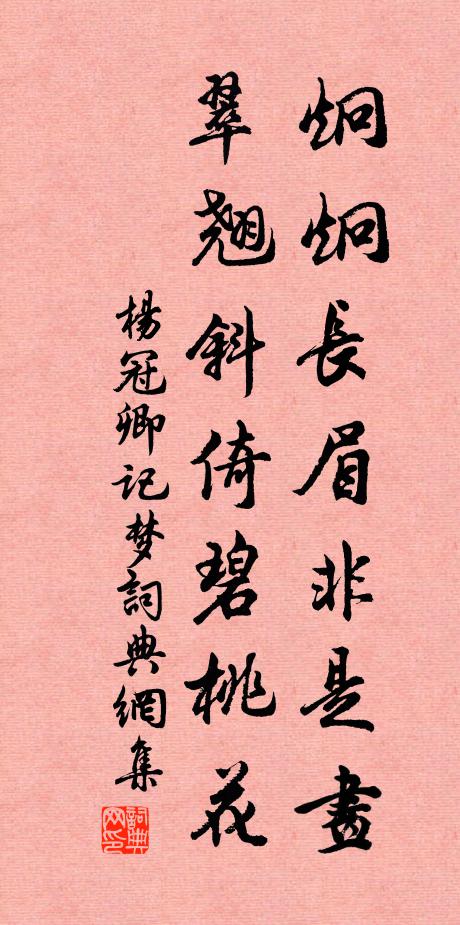 炯炯長眉非是畫
翠翹斜倚碧桃花
楊冠卿记梦詞典網集
詞典网印